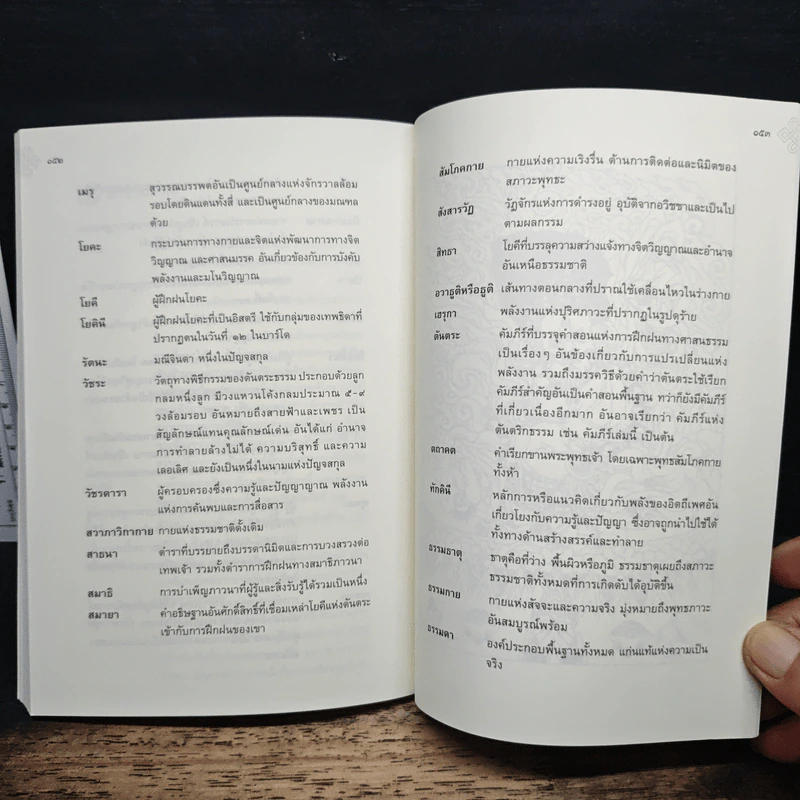 ๑๕๒
เมรุ สุวรรณบรรพตอันเป็นศูนย์กลางแห่งจักรวาลล้อม
รอบโดยดินแดนทั้งสี่ และเป็นศูนย์กลางของมณฑล
ด้วย
โยคะ กระบวนการทางกายและจิตแห่งพัฒนาการทางจิต
วิญญาณ และศาสนมรรค อันเกี่ยวข้องกับการบังคับ
พลังงานและมโนวิญญาณ
โยคี ผู้ฝึกฝนโยคะ
โยคินี ผู้ฝึกฝนโยคะที่เป็นอิสตรี ใช้กับกลุ่มของเทพธิดาที่
ปรากฏตนในวันที่ ๑๒ ในบาร์โด
รัตนะ มณีจินดา หนึ่งในปัญจสกุล
วัชระ วัตถุทางพิธีกรรมของตันตระธรรม ประกอบด้วยลูก
กลมหนึ่งลูก มีวงแหวนโค้งกลมประมาณ ๕-๙
วงล้อมรอบ อันหมายถึงสายฟ้าและเพชร เป็น
สัญลักษณ์แทนคุณลักษณ์เด่น อันได้แก่ อำนาจ
การทำลายล้างไม่ได้ ความบริสุทธิ์ และความ
เลอเลิศ และยังเป็นหนึ่งในนามแห่งปัญจสกุล
วัชรดารา ผู้ครอบครองซึ่งความรู้และปัญญาญาณ พลังงาน
แห่งการค้นพบและการสื่อสาร
สวาภาวิกากาย กายแห่งธรรมชาติดั้งเดิม
สาธนา ตำราที่บรรยายถึงบรรดานิมิตและการบวงสรวงต่อ
เทพเจ้า รวมทั้งตำราการฝึกฝนทางสมาธิภาวนา
สมาธิ การบำเพ็ญภาวนาที่ผู้รู้และสิ่งรับรู้ได้รวมเป็นหนึ่ง
สมายา คำอธิษฐานอันศักดิ์สิทธิ์ที่เชื่อมเหล่าโยคีแห่งตันตระ
เข้ากับการฝึกฝนของเขา
๑๕๓
สัมโภคกาย กายแห่งความเริงรื่น ด้านการติดต่อและนิมิตของ
สภาวะพุทธะ
สังสารวัฏ วัฏจักรแห่งการดำรงอยู่ อุบัติจากอวิชชาและเป็นไป
ตามผลกรรม
สิทธา โยคีที่บรรลุความสว่างแจ้งทางจิตวิญญาณและอำนาจ
อันเหนือธรรมชาติ
อวาธูติหรือธูติ เส้นทางตอนกลางที่ปราณใช้เคลื่อนไหวในร่างกาย
เฮรุกา พลังงานแห่งปุริศภาวะที่ปรากฏในรูปดุร้าย
ตันตระ คัมภีร์ที่บรรจุคำสอนแห่งการฝึกฝนทางศาสนธรรม
เป็นเรื่องๆ อันข้องเกี่ยวกับการแปรเปลี่ยนแห่ง
พลังงาน รวมถึงมรรควิธีด้วยคำว่าตันตระใช้เรียก
คัมภีร์สำคัญอันเป็นคำสอนพื้นฐาน ทว่าก็ยังมีคัมภีร์
ที่เกี่ยวเนื่องอีกมาก อันอาจเรียกว่า คัมภีร์แห่ง
ตันตริกธรรม เช่น คัมภีร์เล่มนี้ เป็นต้น
ตถาคต คำเรียกขานพระพุทธเจ้า โดยเฉพาะพุทธสัมโภคกาย
ทั้งห้า
ทักคินี หลักการหรือแนวคิดเกี่ยวกับพลังของอิตถีเพศอัน
เกี่ยวโยงกับความรู้และปัญญา ซึ่งอาจถูกนำไปใช้ได้
ทั้งทางด้านสร้างสรรค์และทำลาย
ธรรมธาตุ ธาตุคือที่ว่าง พื้นผิวหรือภูมิ ธรรมธาตุเผยถึงสภาวะ
ธรรมชาติทั้งหมดที่การเกิดดับได้อุบัติขึ้น
ธรรมกาย กายแห่งสัจจะและความจริง มุ่งหมายถึงพุทธภาวะ
อันสมบูรณ์พร้อม
ธรรมดา องค์ประกอบพื้นฐานทั้งหมด แก่นแท้แห่งความเป็น
จริง